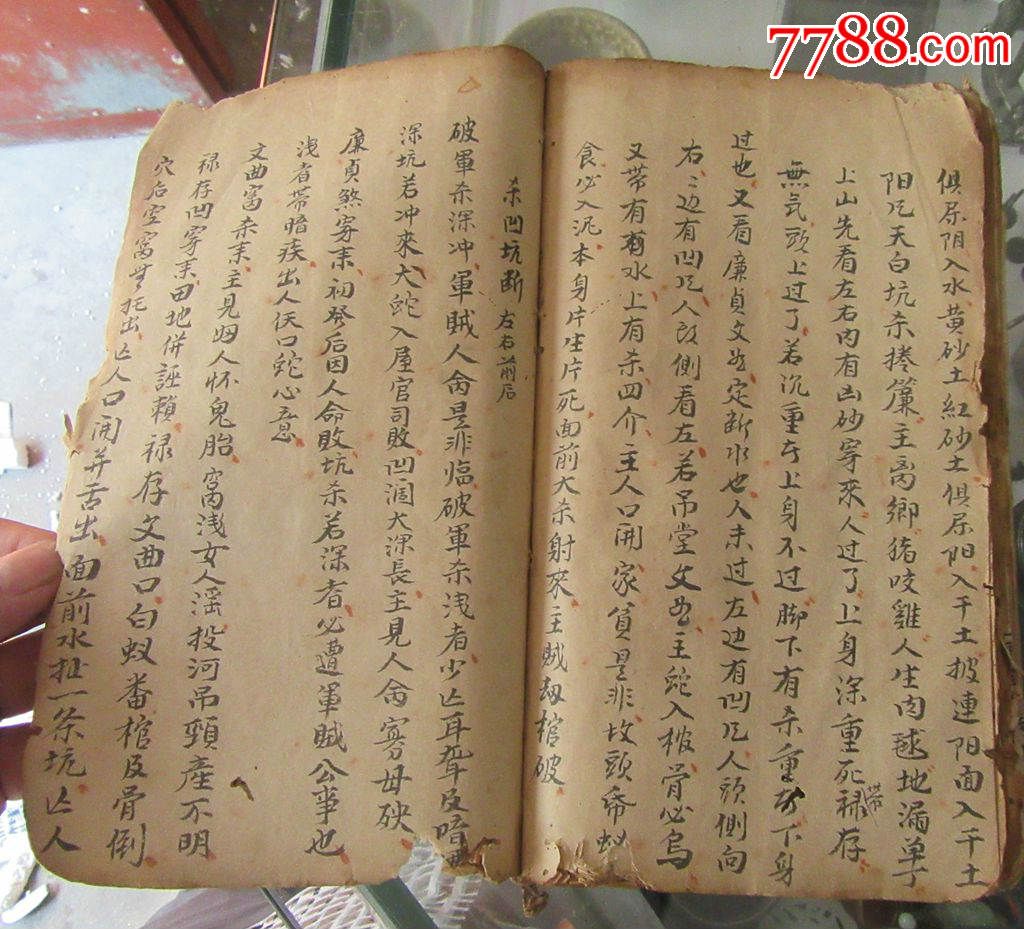 7788.com
俱屎阴入水黄砂土紅砂土俱屎阳入千土披連阳面入千土
阳凡天白坑杀捲簾主离鄉猪吱雞人生肉毬地漏单丁
上山先看左右内有凶砂穿來人过了上身深重死禄存
带
無気頭上过了若沉重在上身不过脚下有杀重切下身
过也又看廉貞文曲定断水也人未过左边有凹凡人頭側向
右〻边有凹凡人頭側看左若吊堂文曲主蛇入棺骨必烏
又带有水上有杀四介主人口開家貧是非坟頭蚁
食必入泥本身片生片死面前大杀射來主賊劫棺破
杀凹坑断 左右前后
破軍杀深冲軍賊人命是非临破軍杀浅者少亡耳聋及喑
深坑若冲來大蛇入屋官司敗凹濶大深長主見人命寡母殃
廉貞煞穿来初癸后因人命敗坑杀若深者必遭軍賊公事也
浅者带暗疾出人仸口蛇心意
文曲窩杀来主見妇人怀鬼胎窩浅女人淫投河吊頸產不明
禄存凹穿来田地併誣賴禄存文曲口白蚁番棺及骨倒
穴后空窩無托出亡人口開并舌出面前水扯一条坑亡人